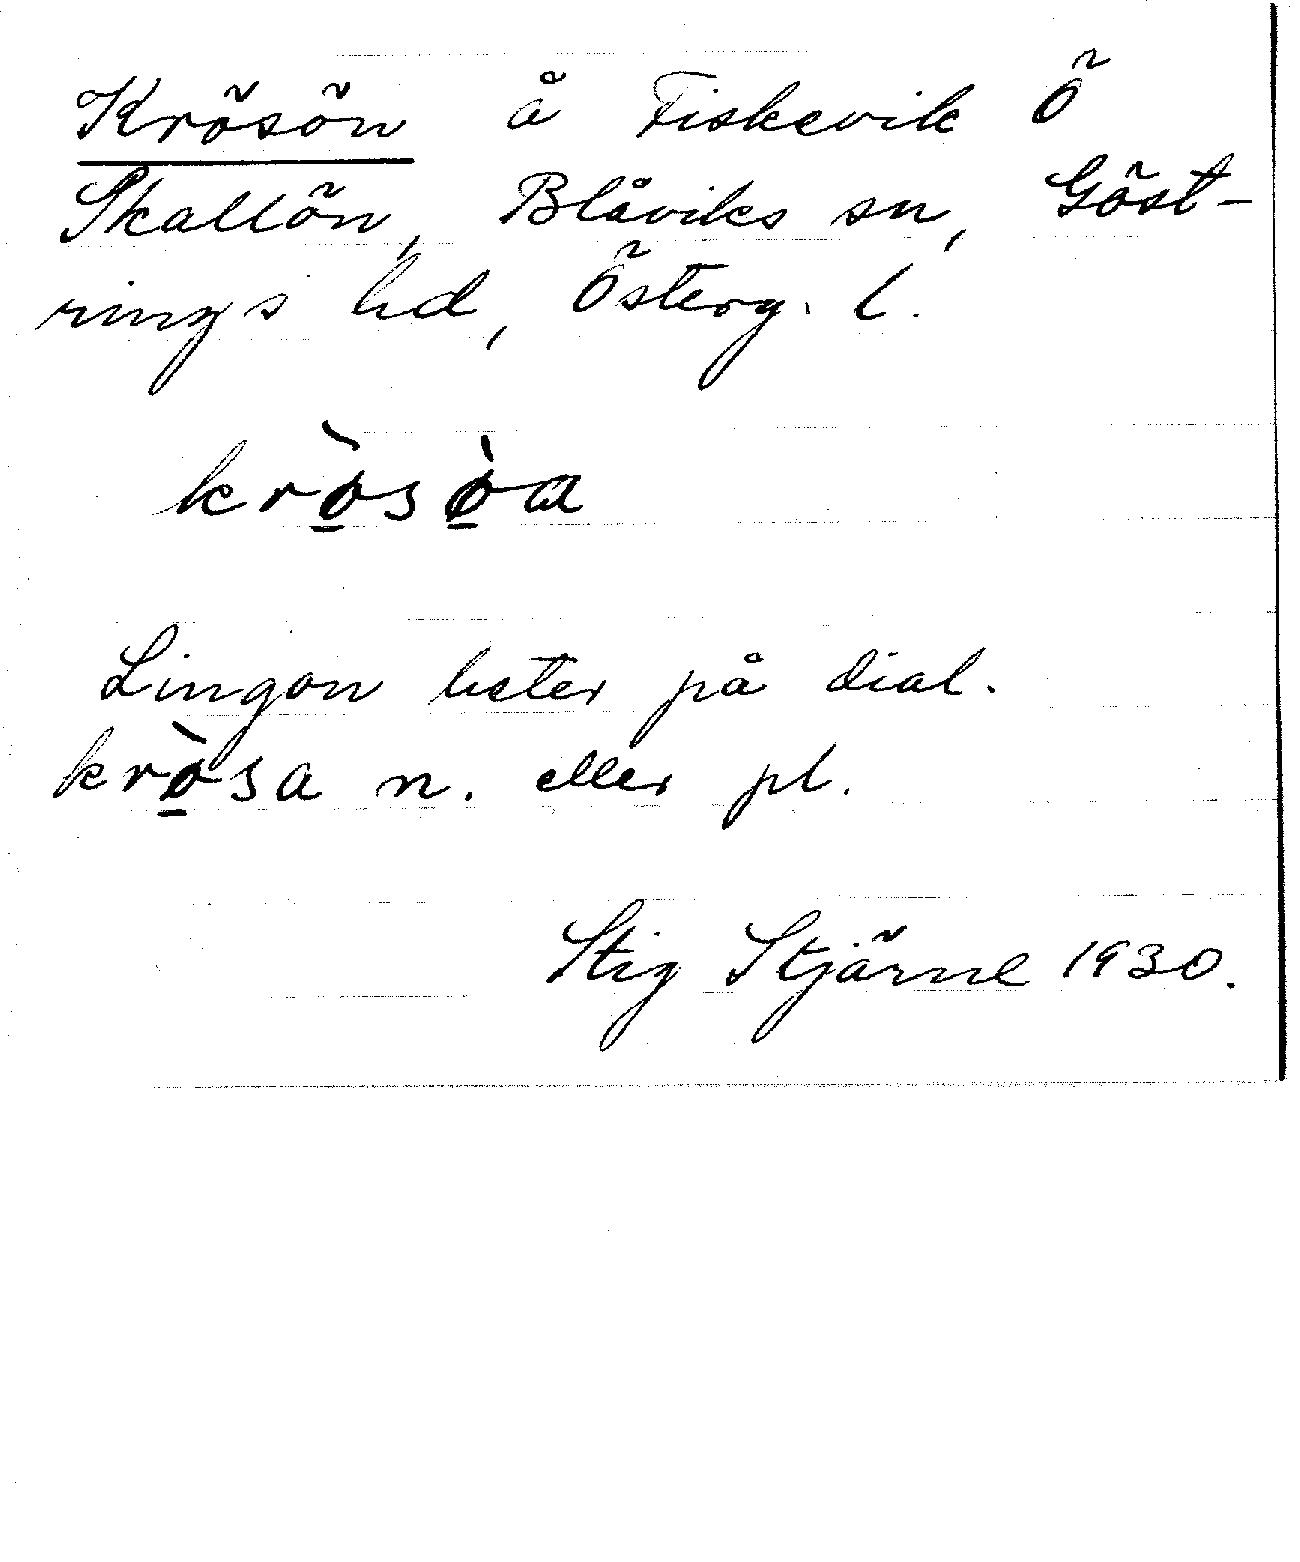 Krösön å Fiskevik Ö
Skallön, Blåviks sn, Göst-
rings hd, Österg. l.
krø̀sø̀a
Lingon heter på dial.
krø̀sa n. eller pl.
Stig Stjärne 1930.